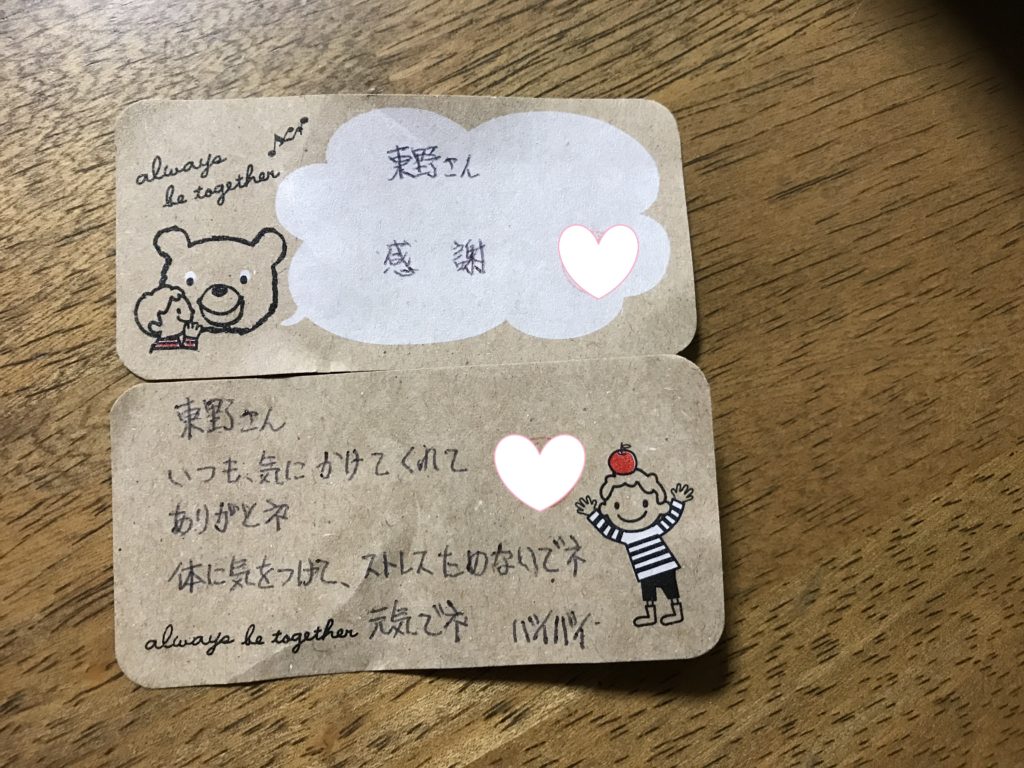 always
be together
東野さん
感 謝
東野さん
いつも、気にかけてくれて
ありがとネ
体に気をつけて、ストレスためないでネ
always be together 元気でネ バイバイー